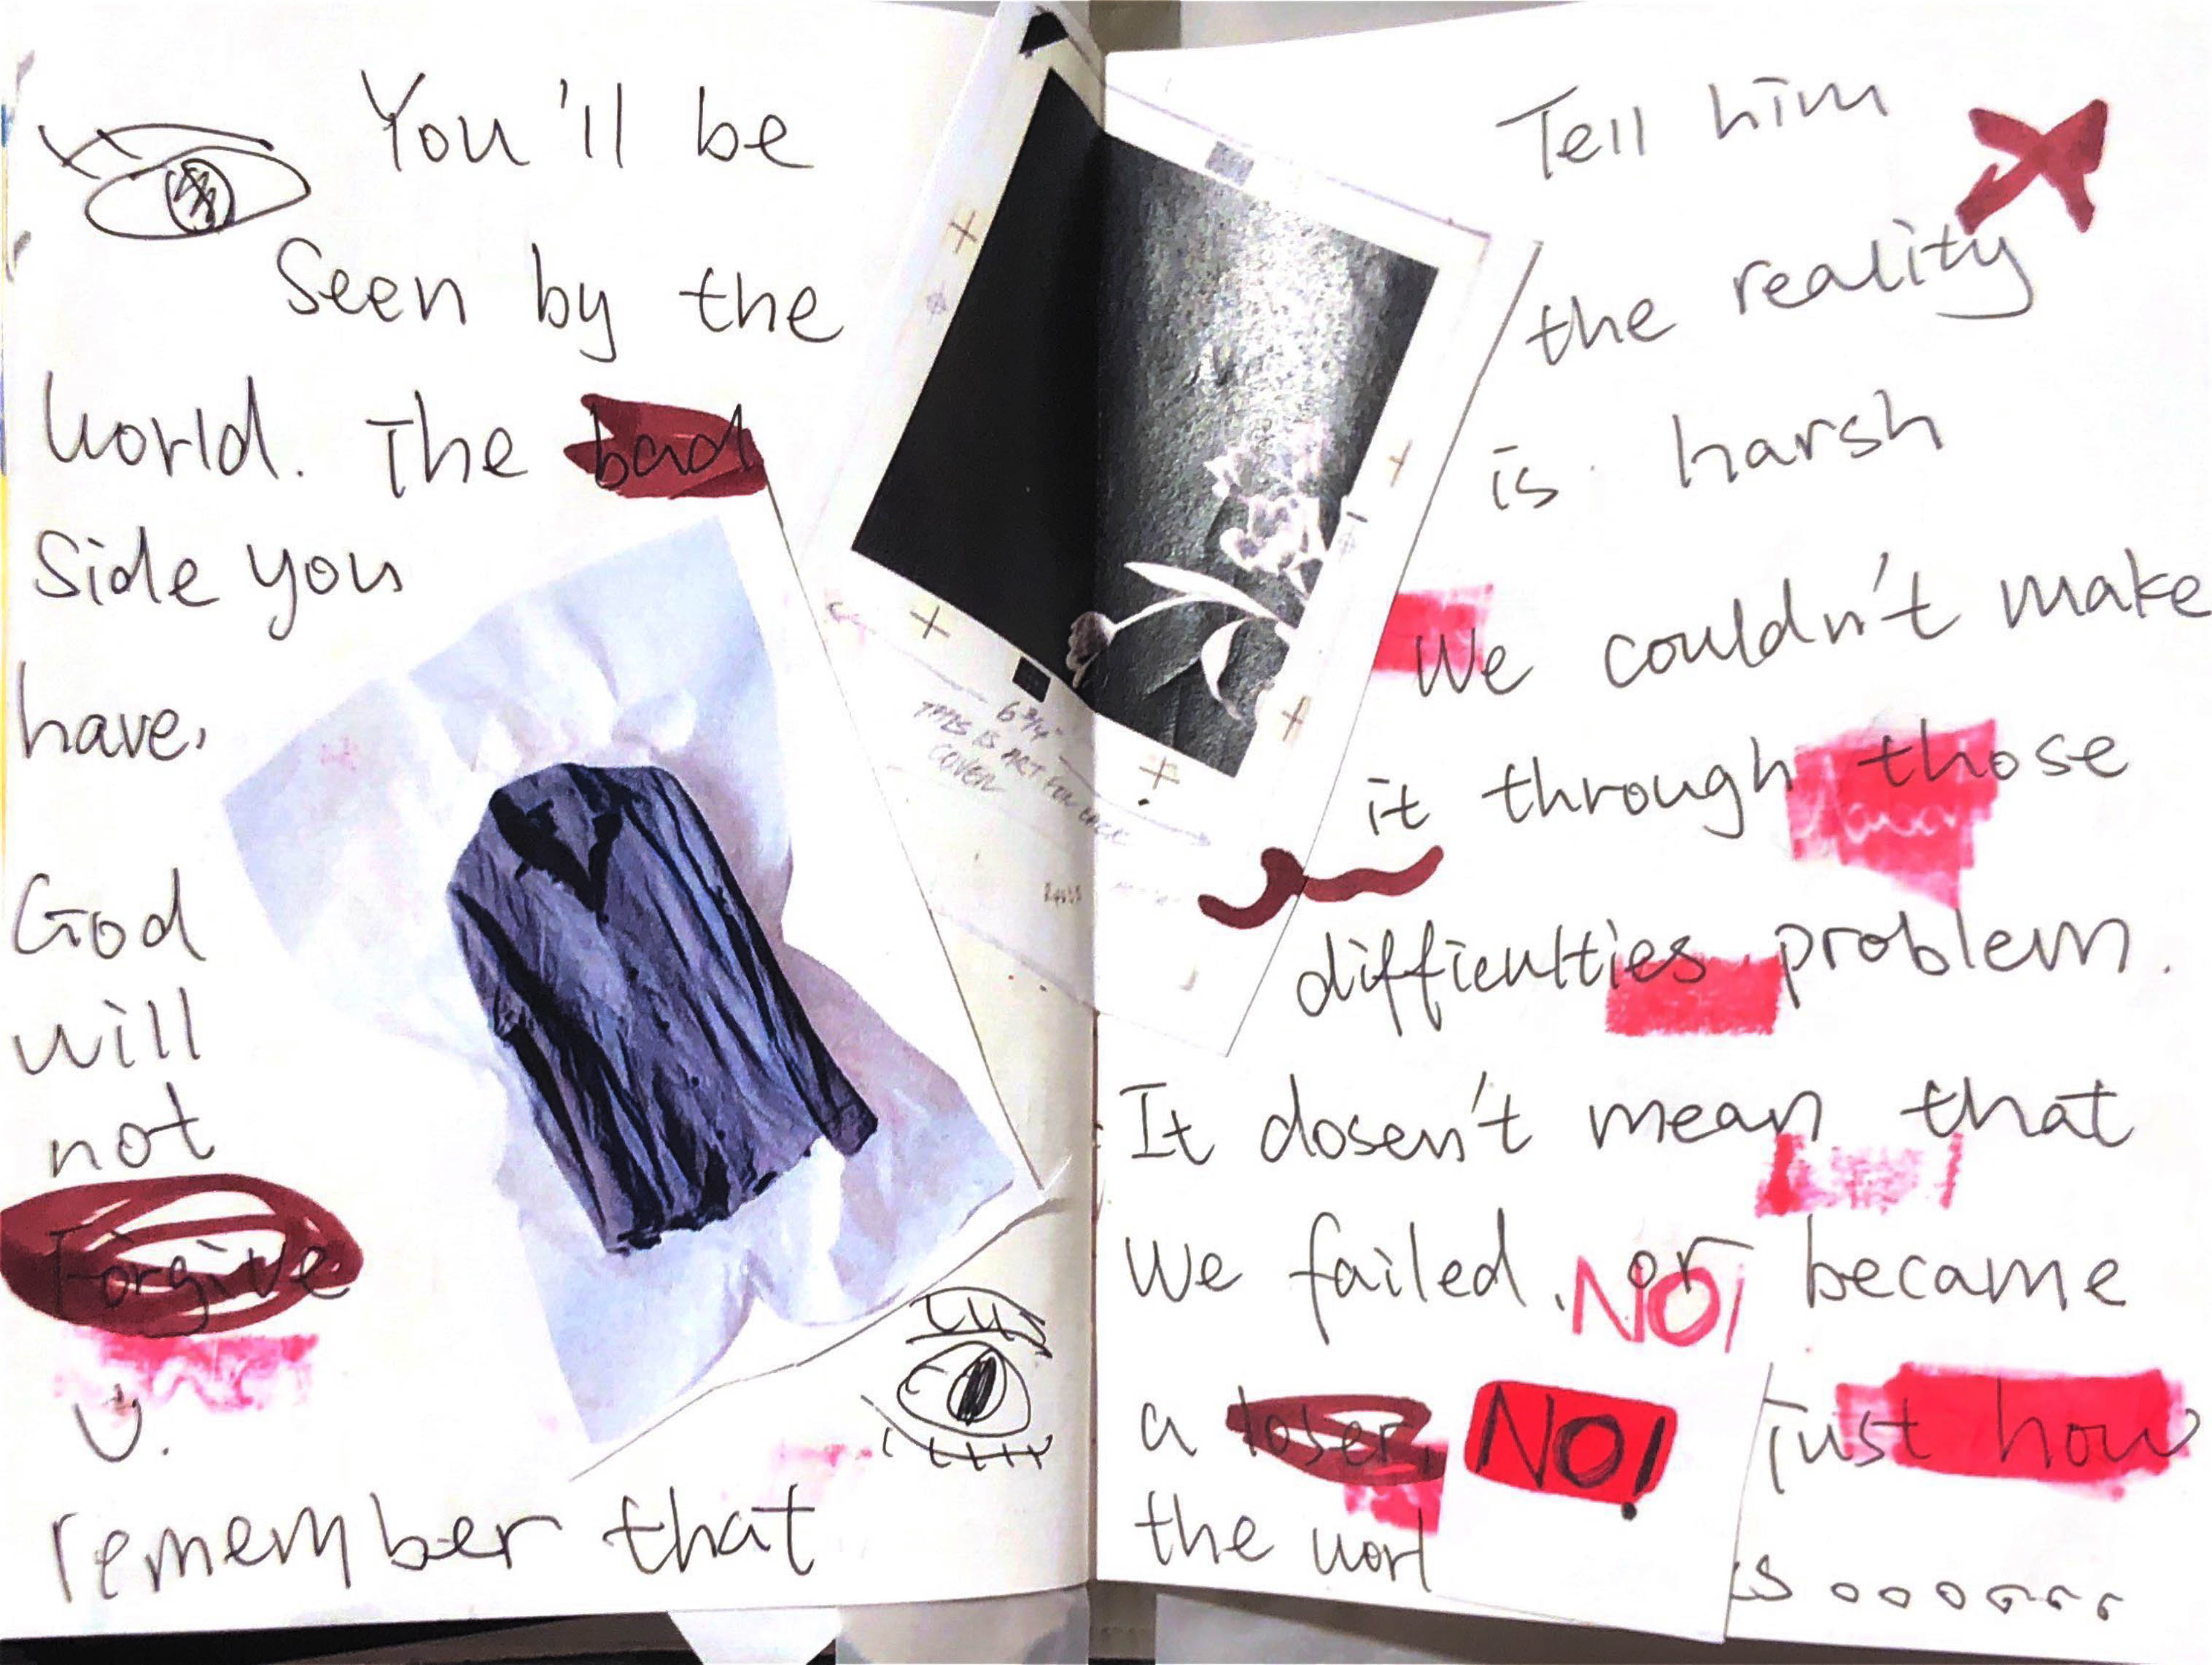 You'll be
Seen by the
world. The bad
Side you
have.
God
will
not
Forgive
U.
remember that
6 3/4"
THIS IS ART FOR
COVER
Tell him
the reality
is harsh
We couldn't make
it through those
difficulties problem.
It dosen't mean that
We failed. or became
NO!
a loser, NO! Just how
the worl s